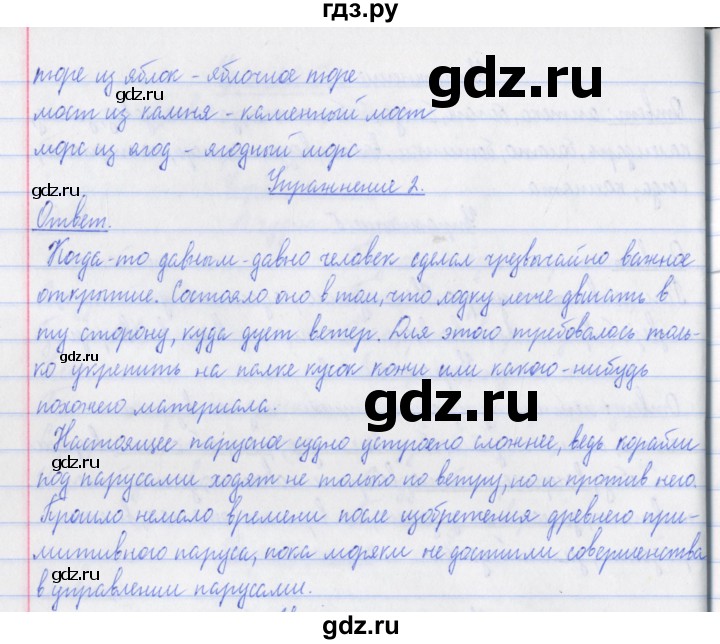 гдз.ру
пюре из яблок - яблочное пюре
gdz.ru
gdz.ru
мост из камня - каменный мост
морс из ягод - ягодный морс
gdz.ru
Упражнение 2.
Ответ.
Когда-то давным-давно человек сделал чрезвычайно важное
gdz.ru
открытие. Состояло оно в том, что лодку легче двигать в
ту сторону, куда дует ветер. Для этого требовалось толь-
gdz.ru
ко укрепить на палке кусок кожи или какого-нибудь
gdz.ru
похожего материала.
Настоящее парусное судно устроено сложнее, ведь корабли
gdz.ru
под парусами ходят не только по ветру, но и против него.
Прошло немало времени после изобретения древнего при-
митивного паруса, пока моряки не достигли совершенства
gdz.ru
gdz.ru
в управлении парусами.
gdz.ru